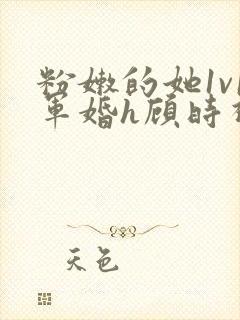 粉嫩的她1v1
军婚h顾时
天色